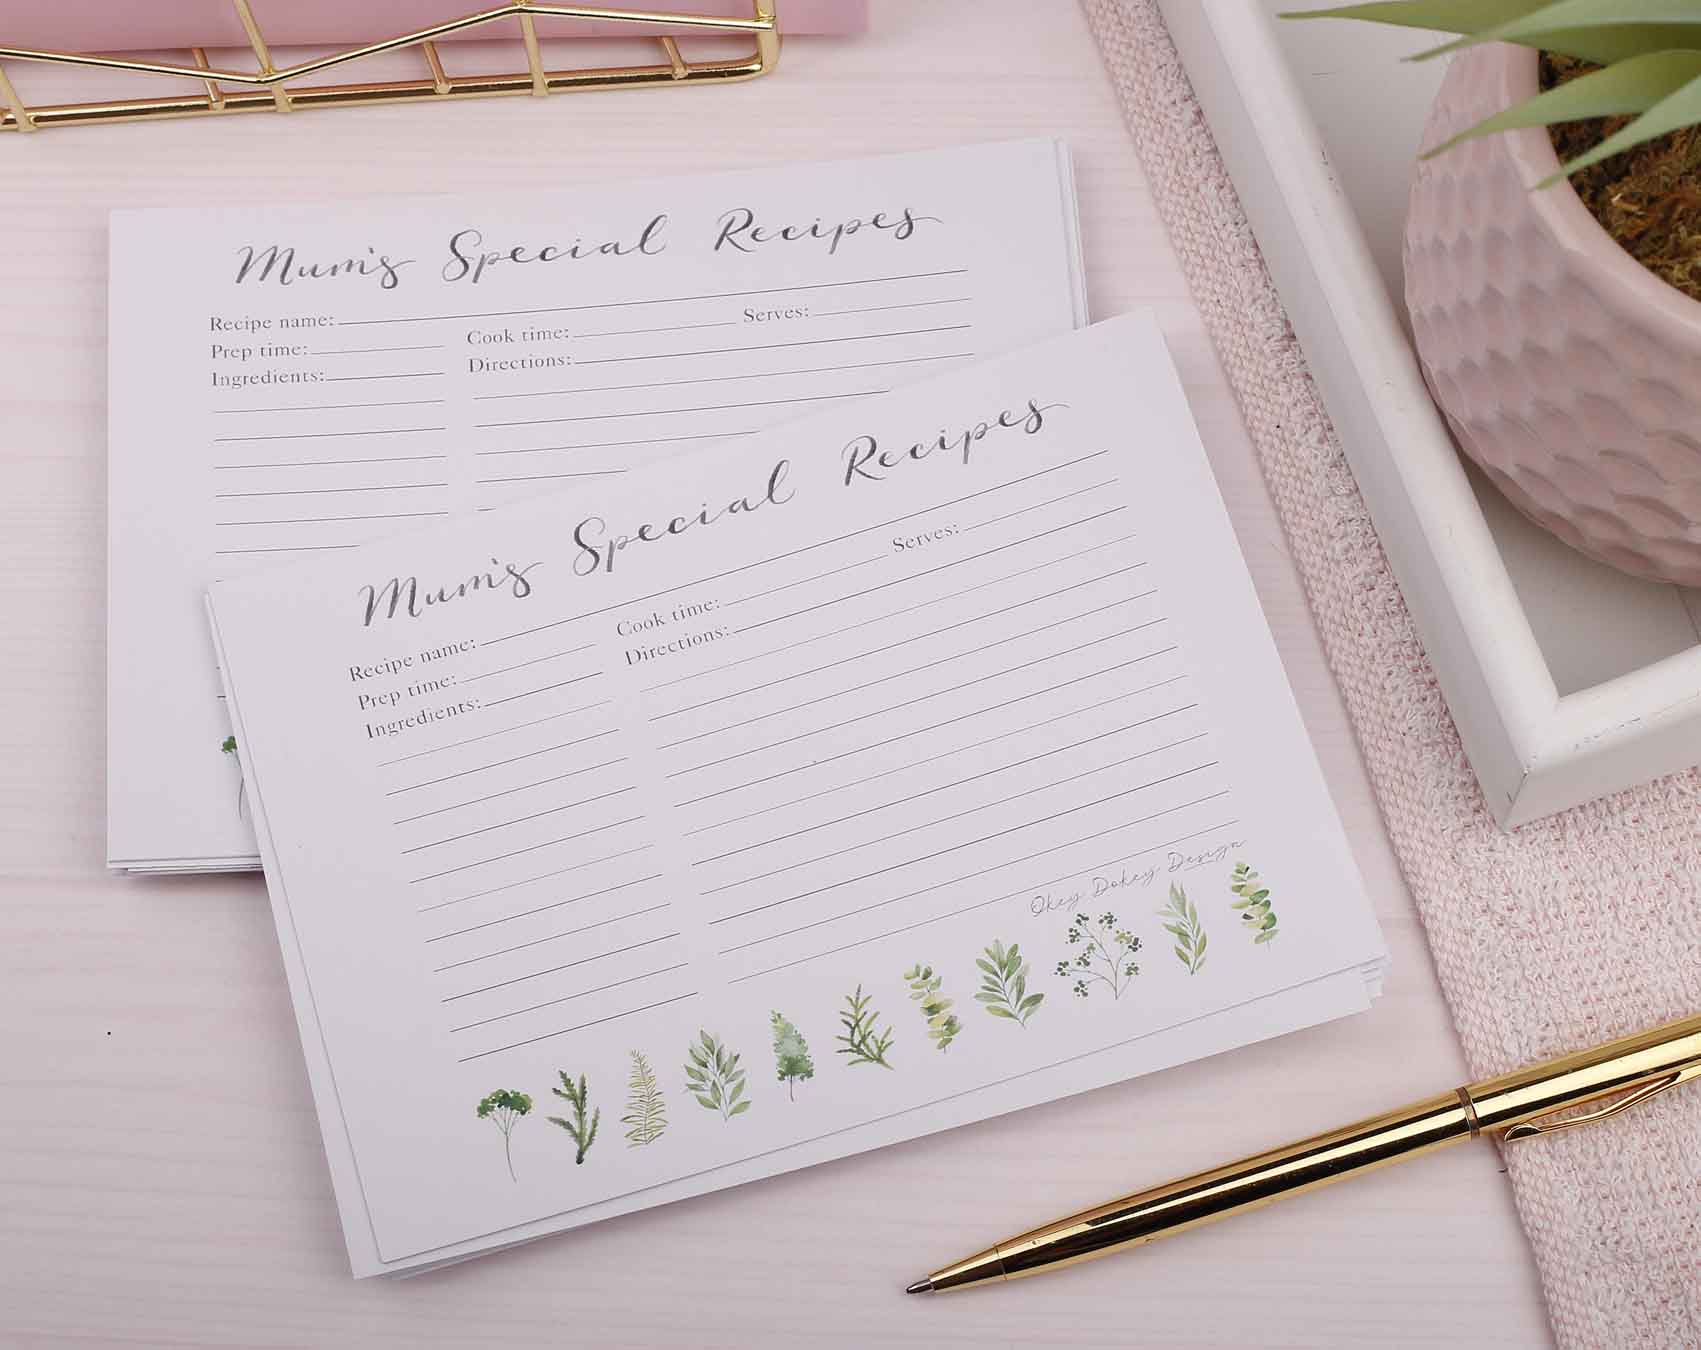 Mum's Special Recipes
Recipe name:
Prep time: Cook time: Serves:
Ingredients: Directions:
Mum's Special Recipes
Recipe name:
Prep time: Cook time: Serves:
Ingredients: Directions:
Okey Dokey Design